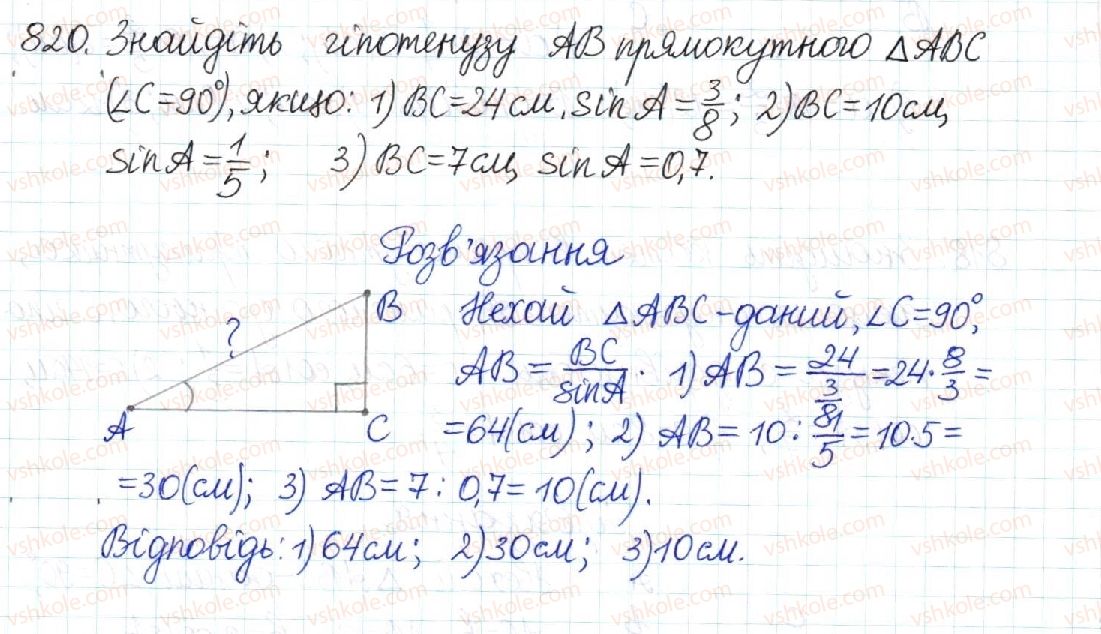 820. Знайдіть гіпотенузу AB прямокутного △ABC
(∠C=90°), якщо: 1) BC=24 см, sin A = 3/8; 2) BC=10 см,
sin A = 1/5; 3) BC=7 см, sin A=0,7.
Розв'язання
B Нехай △ABC – даний, ∠C=90°,
?
AB = BC/sin A. 1) AB = 24/(3/8) = 24·8/3 =
A C =64(см); 2) AB = 10 : 1/5 = 10·5 =
=30(см); 3) AB = 7 : 0,7 = 10(см).
Відповідь: 1) 64 см; 2) 30 см; 3) 10 см.
vshkole.com